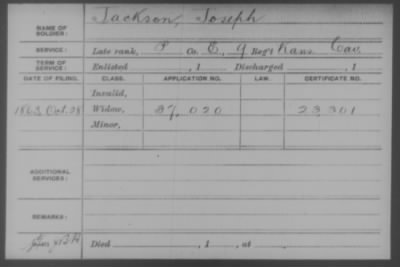 Jackson, Joseph
NAME OF SOLDIER:
SERVICE: Late rank, P Co. E, 9 Reg't Kans. Cav.
TERM OF SERVICE: Enlisted , 1 Discharged , 1
DATE OF FILING. CLASS. APPLICATION NO. LAW. CERTIFICATE NO.
Invalid,
1863 Oct. 28 Widow, 37,020 23,301
Minor,
ADDITIONAL SERVICES:
REMARKS:
Died , 1 , at .